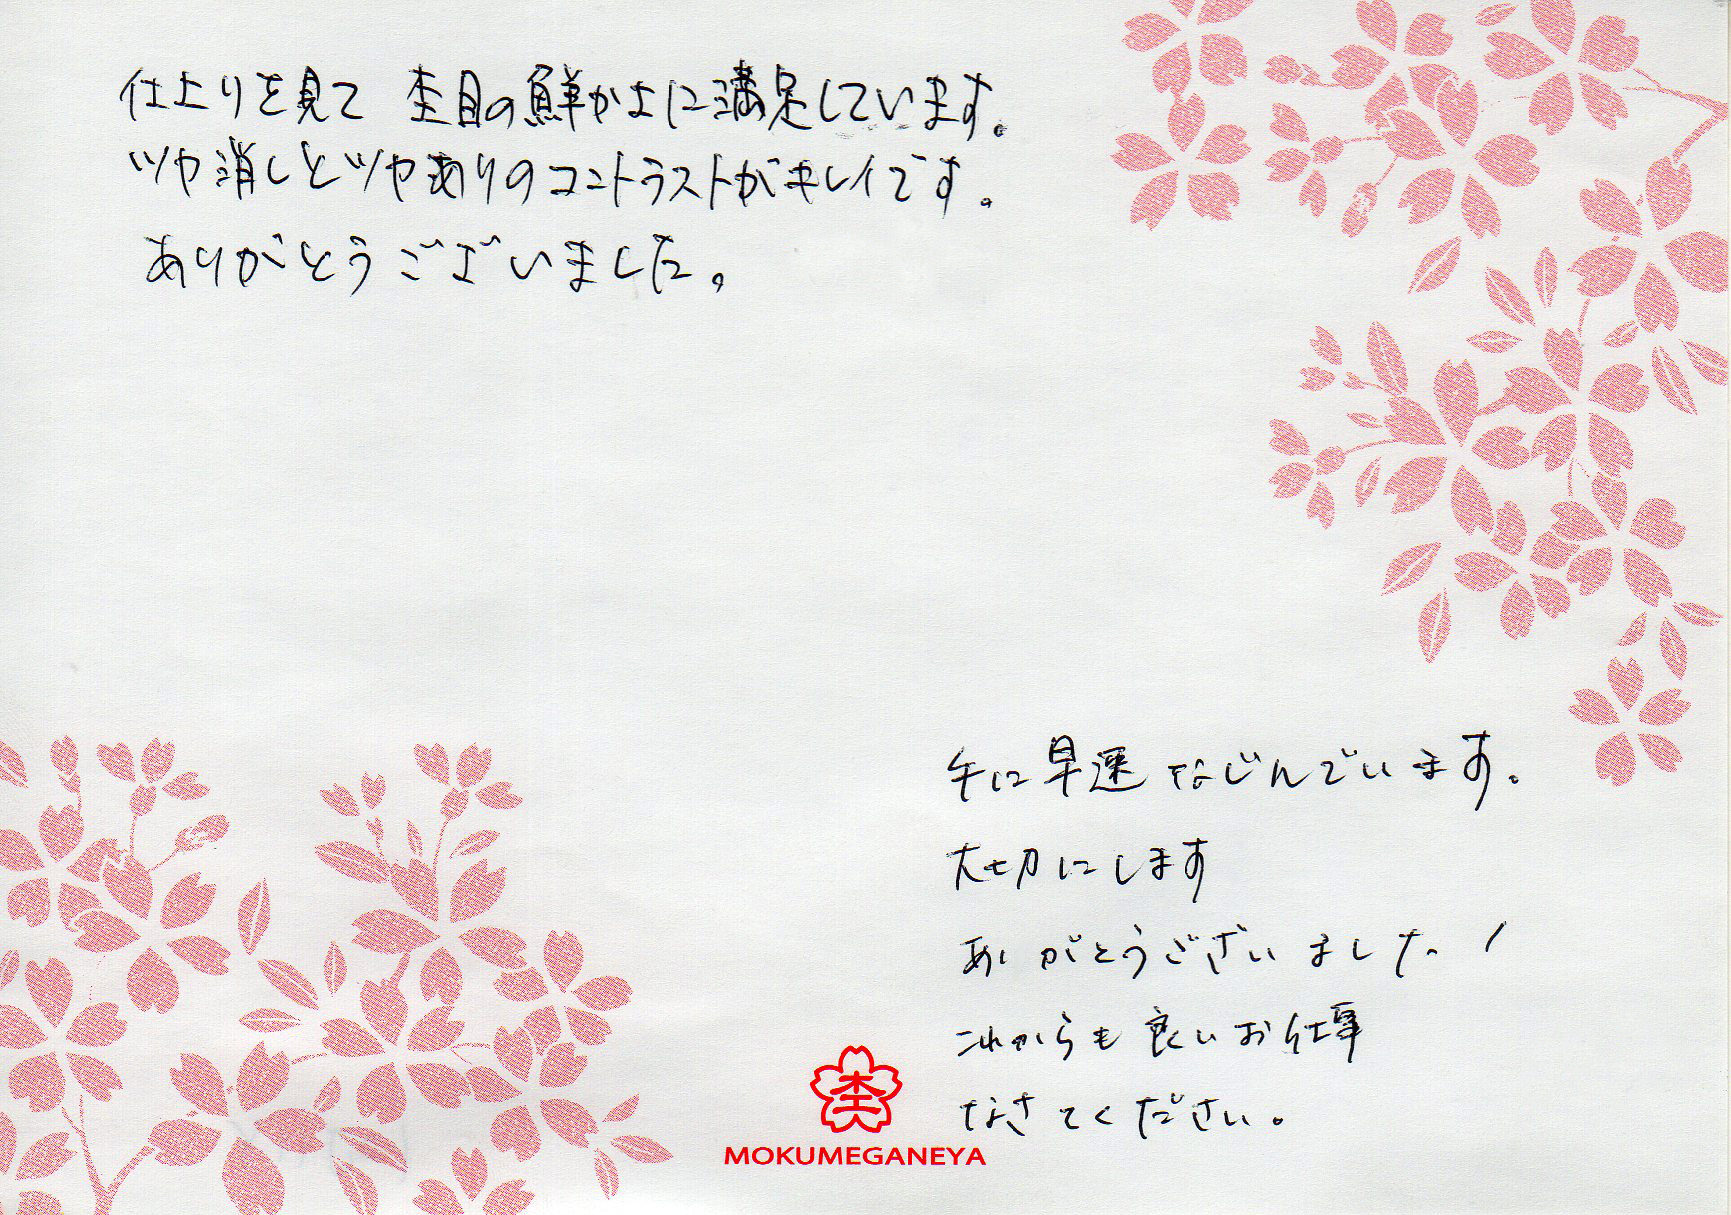 仕上りを見て 杢目の鮮かさに満足しています。
ツヤ消しとツヤありのコントラストがキレイです。
ありがとうございました。
手に早速なじんでいます。
大切にします
ありがとうございました!
これからも良いお仕事
なさてください。
杢
MOKUMEGANEYA